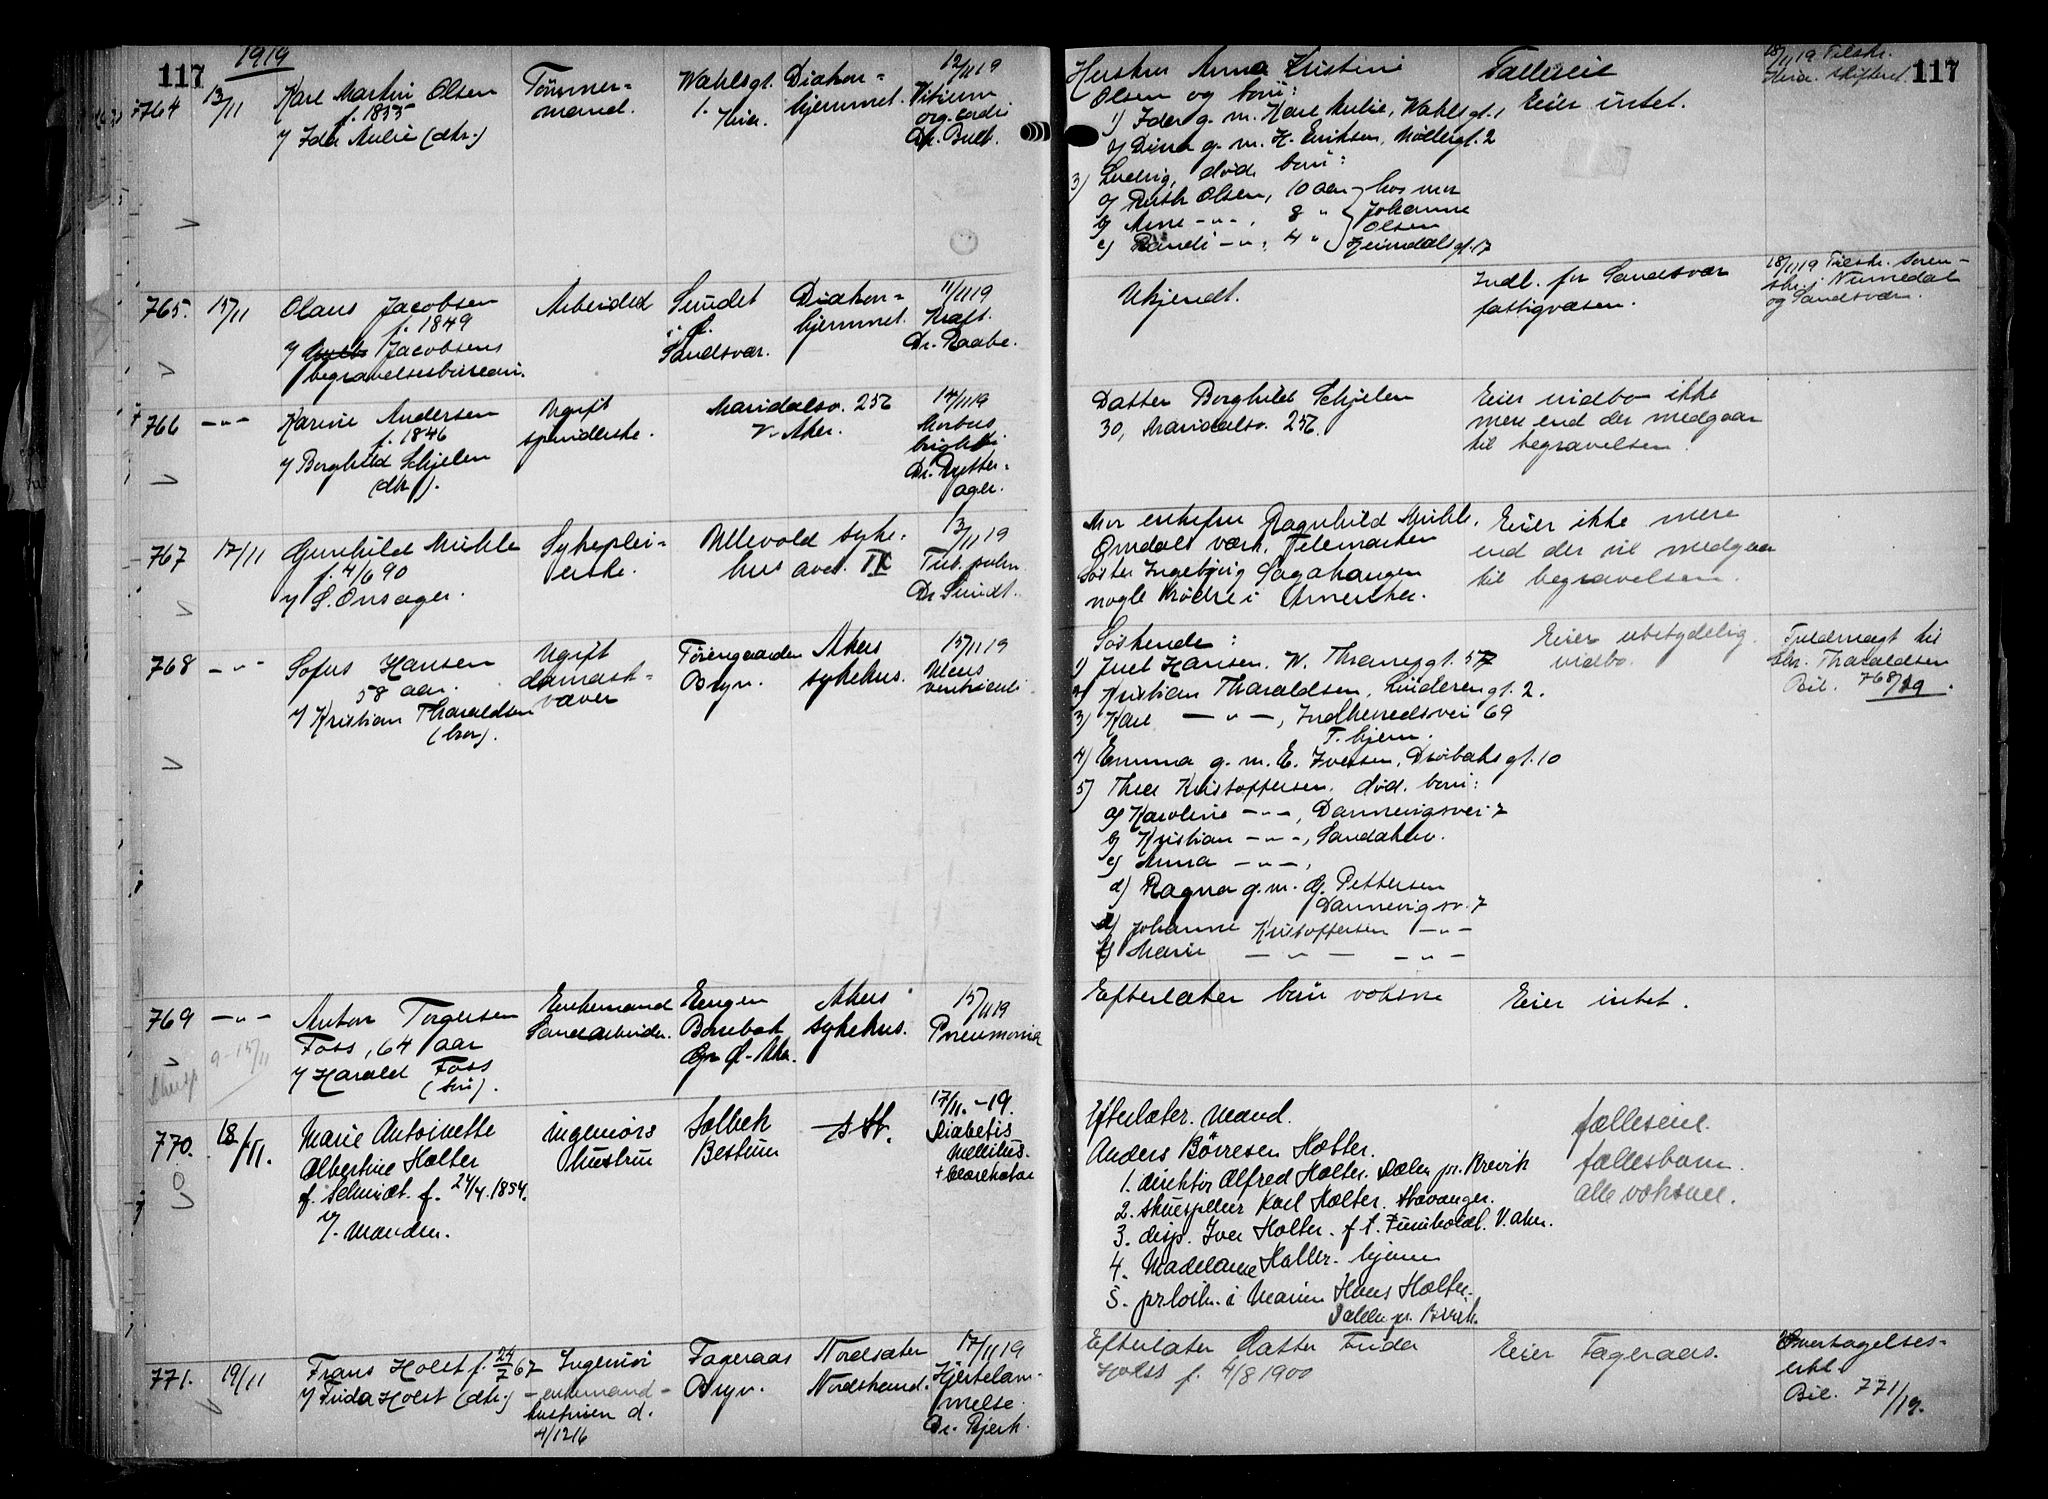 117
1919
117
764
13/11
Karl Martin Olsen
f. 1835
v/ Ida Aulie (dtr.)
Tømmer-
mand.
Wahlsgt.
1.
Diakon-
hjemmet.
12/11 19
Vitium
org. cordis
Dr. Bull.
Hustru Anna Kristine
Olsen og barn:
1) Ida g. m. Karl Aulie, Wahlsgt. 1
2) Dina g. m. H. Eriksen, Møllergt. 2
3) Ludvig, død. barn:
a) Ruth Olsen, 10 aar
b) Arne -"-, 8 "
c) Randi -"-, 4 "
hos mor
Johanne
Olsen
Heimdalsgt. 17
Fælleseie
Eier intet.
18/11 19 Tilskr.
skifteret
765.
15/11
Olaus Jacobsen
f. 1849
v/ Jacobsens
begravelsesbureau.
Arbeider
i
Sandsvær.
Diakon-
hjemmet.
11/11 19
Kraft.
Dr. Raabe.
Ukjendt.
Indl. for Sandsvær
fattigvæsen.
18/11 19 Tilskr. soren-
skr. i Numedal
og Sandsvær.
766
-"-
Karine Andersen
f. 1846
v/ Borghild Schjelen
(dtr).
Ugift
spinderske.
Maridalsv. 256
V. Aker.
14/11 19
Morbus
brighti
Dr. Rytter-
ager.
Datter Borghild Schjelen
30, Maridalsv. 256.
Eier indbo ikke
mere end der medgaar
til begravelsen.
767
17/11
Gunhild Muhle
f. 4/6 90
v/ S. Onsager.
Sykeplei-
erske.
Ullevold syke-
hus avd. IX
13/11 19
Tub. pulm.
Dr. Sundt.
Mor enkefru Ragnhild Muhle.
Omdals værk, Telemarken
Søster Ingebjørg Sagahaugen
nogle brødre i Amerika.
Eier ikke mere
end der vil medgaar
til begravelsen.
768
-"-
Sofus Hansen
58 aar.
v/ Kristian Tharaldsen
(bror).
Ugift
damask-
væver
Bryn.
Akers
sykehus.
15/11 19
Ulcus
ventriculi
Søskende:
1) Juel Hansen. W. Thranesgt. 57
2) Kristian Tharaldsen, Lindernsgt. 2.
3) Karl -"-, Indherredsvei 69
T. hjem.
4) Emma g. m. E. Iversen, Drøbaksgt. 10
5) Thea Kristoffersen. død. barn:
a) Karoline -"-, Dannevigsvei 7
b) Kristian -"-, Sandakerv.
c) Anna -"-,
d) Ragna g. m. G. Pettersen
Dannevigsv. 7
e) Johanne Kristoffersen -"-
f) Marie -"- -"-
Eier ubetydelig
indbo.
Fuldmagt til
Chr. Tharaldsen
Bil. 768/19.
769
-"-
Anton Torgersen
Foss, 64 aar
v/ Harald Foss
(søn).
9-15/11
Enkemand
Sandarbeider.
Engen
Ø. Aker.
Akers
sykehus.
15/11 19
Pneumonia
Efterlater barn voksne
Eier intet.
770.
18/11.
Marie Antoinette
Albertine Holter
f. Schmidt. f. 24/4. 1854.
v/. Manden.
Ingeniørs
hustru
Solbek
Bestum
s. st.
17/11. -19.
Diabetis
Mellitus.
Efterlater. Mand.
Anders Børresen Holter.
1. direktør Alfred Holter. Dalen pr. Brevik
2. Skuespiller Karl Holter. Stavanger.
3. disp. Iver Holter. f. t. V. Aker.
4. Madelaine Holter. hjem
5. prloitn. i Marinen Hans Holter.
Dalen pr. Brevik.
fælleseie.
fællesbarn.
alle voksne.
771.
19/11
Frans Holst f. 24/7 67
v/ Frida Holst (dtr.)
Ingeniør
- enkemand -
hustruen d.
4/12 16
Fageraas
Bryn.
Nordsæter
Nordstrand.
17/11 19
Hjertelam-
melse.
Dr. Bjerk.
Efterlater datter Frida
Holst f. 4/8 1900
Eier Fageraas.
Overtagelses-
erkl.
Bil. 771/19.